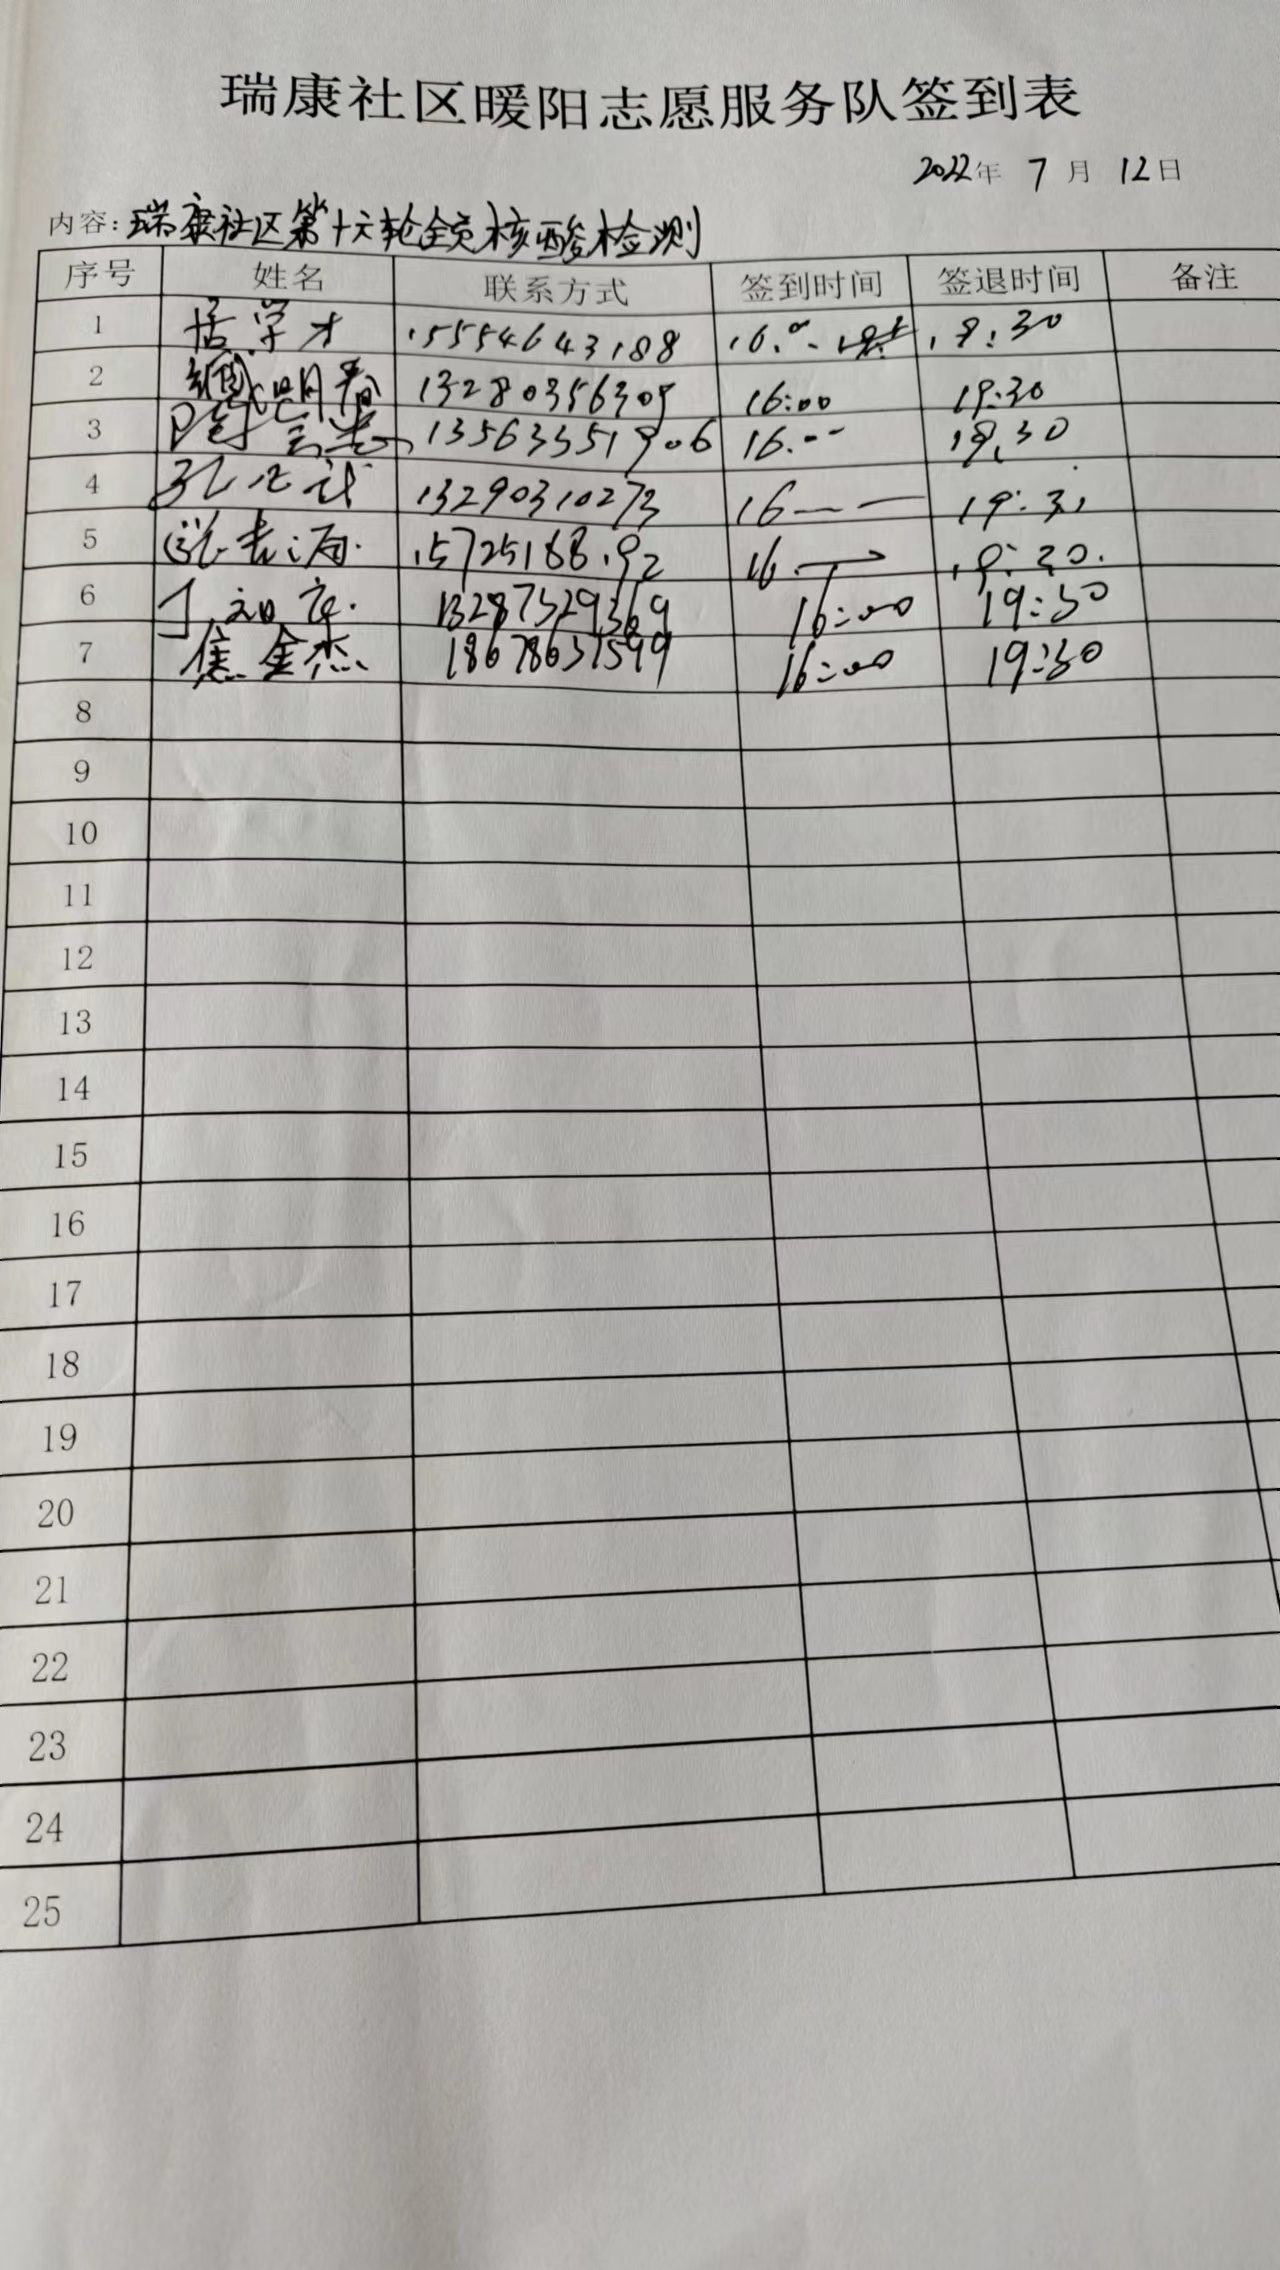 瑞康社区暖阳志愿服务队签到表
2022年 7月 12日
内容: 瑞康社区第十六轮全员核酸检测
序号 姓名 联系方式 签到时间 签退时间 备注
1 学才 15554643188 16:00 19:30
2 明春 13280356309 16:00 19:30
3 13563351906 16:00 19:30
4 孔 13290310273 16 19:3
5 15725188192 16
6 丁 13287329369 16:00 19:30
7 焦金杰 18678631599 16:00 19:30
8
9
10
11
12
13
14
15
16
17
18
19
20
21
22
23
24
25